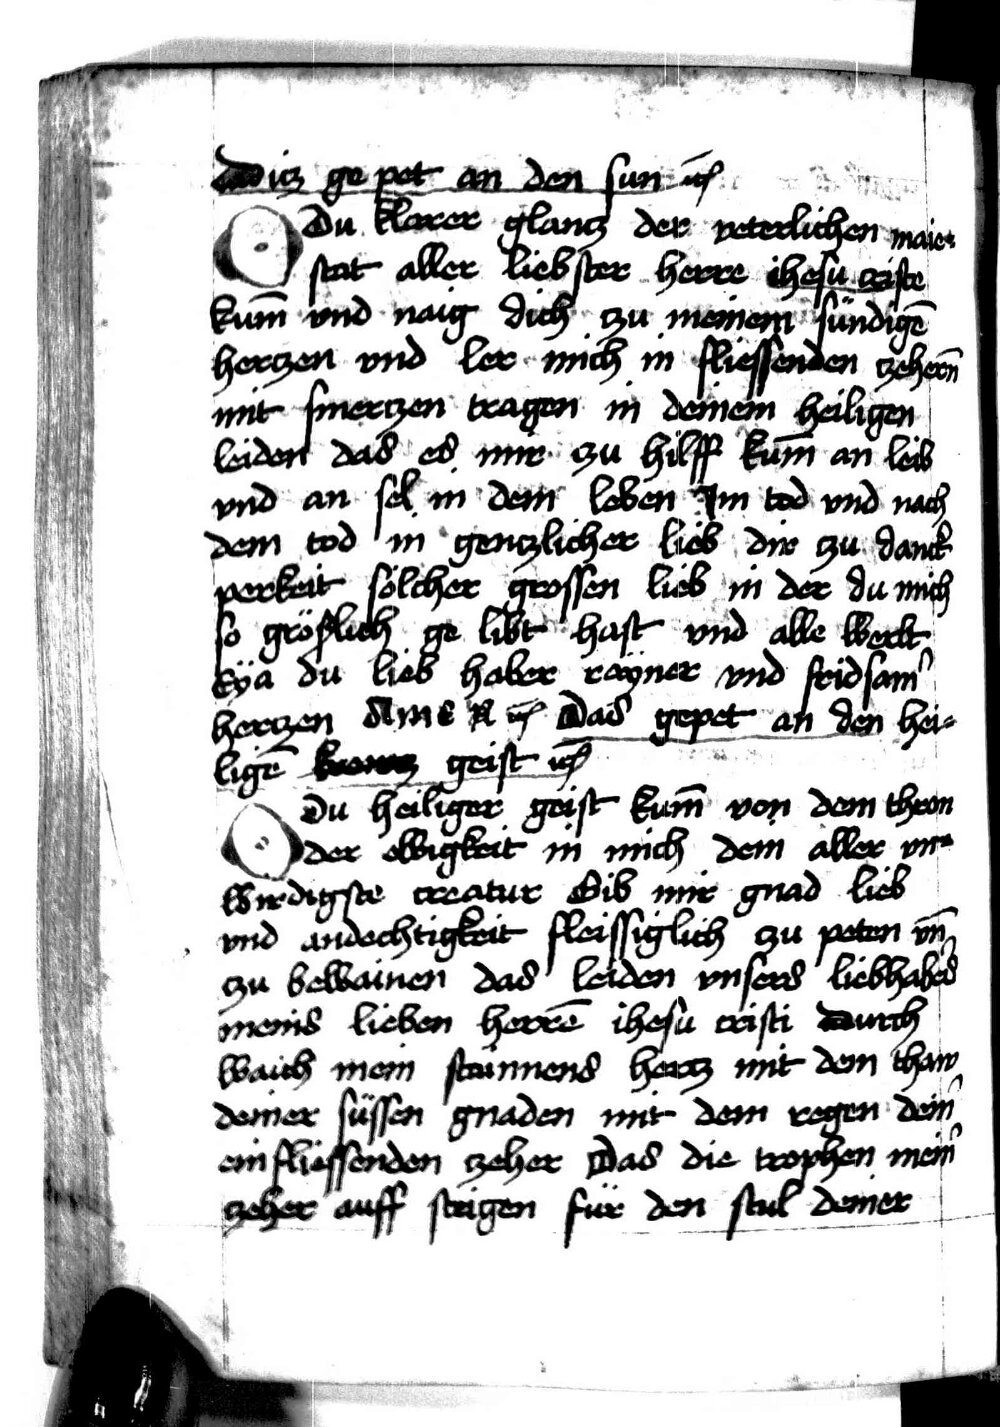 Ditz ge pet an den sun etc̄
O Du klarer glantz der veterlichen maie-
stat aller liebster herre ihesu criste
kum̄ vnd naig dich zu meinem sündigē
hertzen vnd ler mich in fliessenden zehern̄
mit smertzen tragen in deinem heiligen
leiden das es mir zu hilff kum̄ an leib
vnd an sel in dem leben Im tod vnd nach
dem tod in gentzlicher lieb dir zu danck
perkeit sölcher grossen lieb in der du mich
so gröslich ge libt hast vnd alle werlt
Eya du lieb haber rayner vnd fridsam̉
hertzen AmeN etc̄ Das gepet an den hei-
ligē geist etc̄
O Du heiliger geist kum̄ von dem thron
der ewigkeit in mich dem aller vn-
wirdigste creatur Gib mir gnad lieb
vnd andechtigkeit fleissiglich zu peten vn̄
zu bewainen das leiden vnsers liebhabers
meins lieben herrē ihesu cristi durch
waich mein stainnens hertz mit dem thaw
deiner süssen gnaden mit dem regen dein̉
ein fliessenden zeher Das die trophen mein̉
zeher auff steigen für den stul deiner